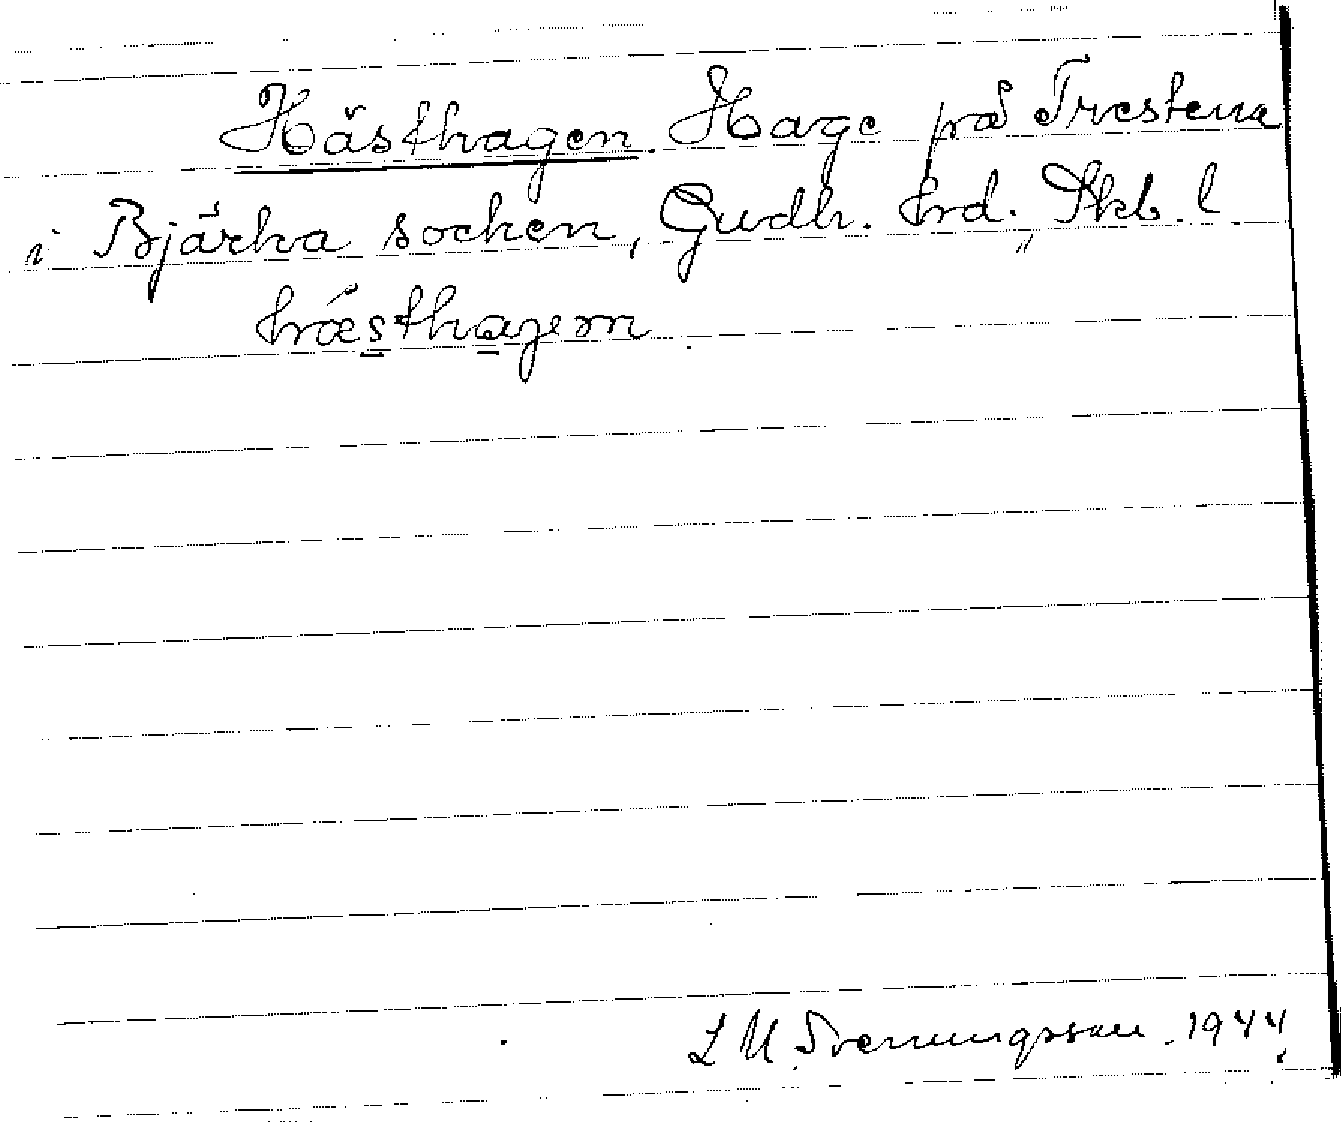 Hästhagen. Hage på Trestena
i Bjärka socken, Gudh. hrd., Skb. l
hæsthagem
L M Svenungsson. 1944